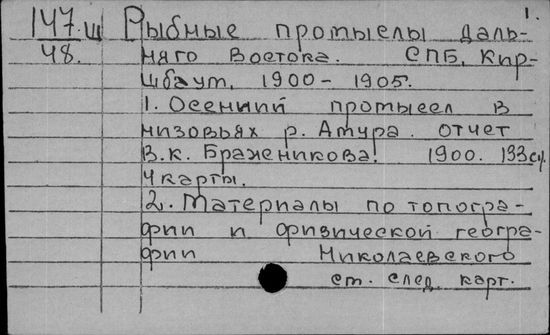 1.
147.Щ Рыбные промыслы даль-
48. няго Востока. СПБ, Кир-
шбаум, 1900-1905.
1. Осенний промысел в
низовьях р. Амура. отчет
В.к. Браженикова. 1900. 133 с.
4 карты.
2. Материалы по топогра-
фии и физической геогра-
фии Николаевского
ст. след. карт.